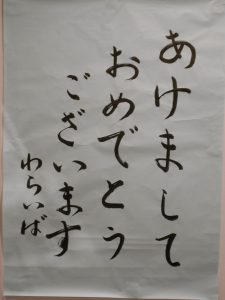 あけまして
おめでとう
ございます
わらいば